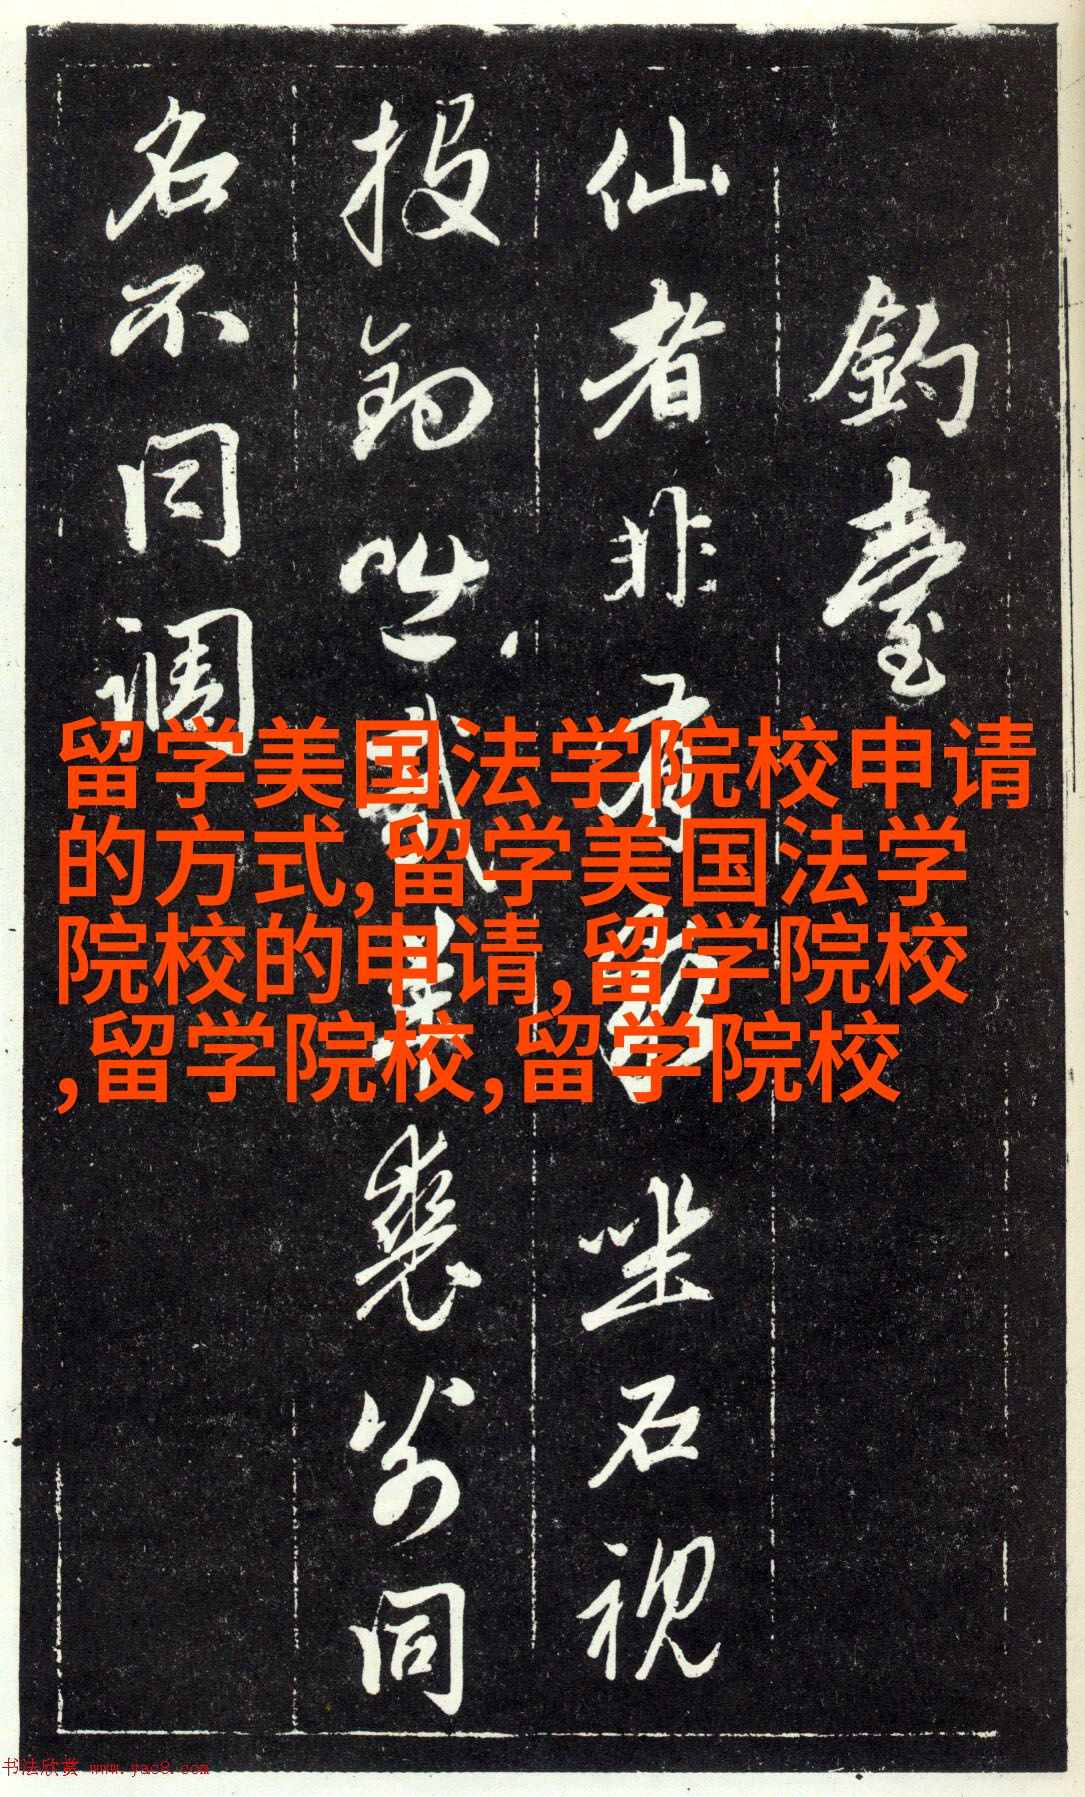 釣臺
仙者非有坐石視
投鉤咄哉羊裘同
名不同調
留学美国法学院校申请
的方式,留学美国法学
院校的申请,留学院校
,留学院校,留学院校
书法欣赏 www.yac8.com